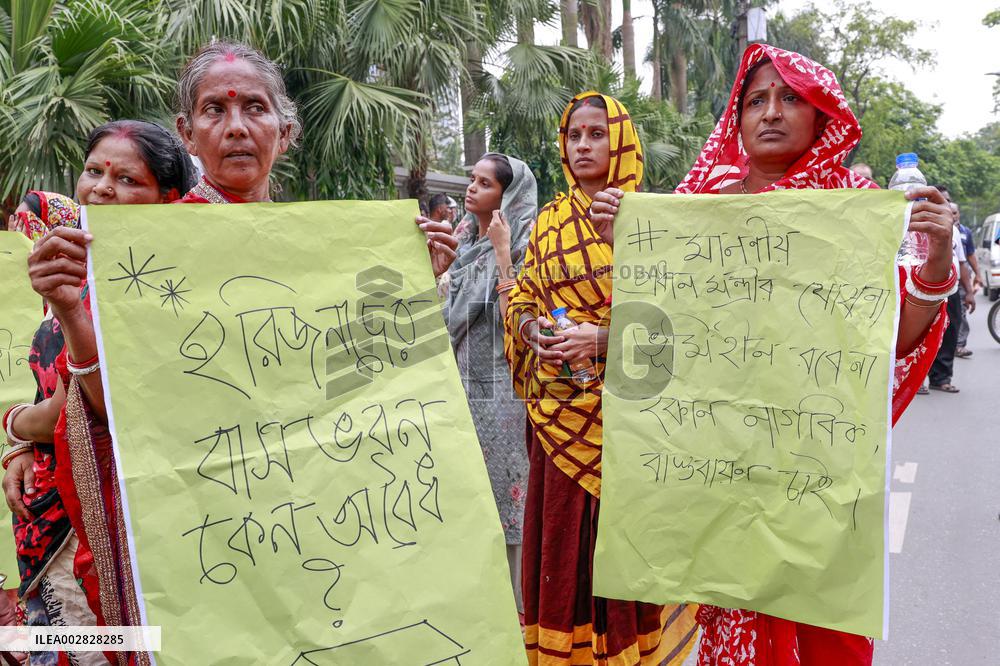 হরিজনদের
বাসভবন
কেন অবৈধ
?
# মাননীয়
প্রধান মন্ত্রীর ঘোষনা
ভূমিহীন রবেনা
কোন নাগরিক,
বাস্তবায়ন চাই।
IMAGE LINK GLOBAL
ILG
ILEA002828285